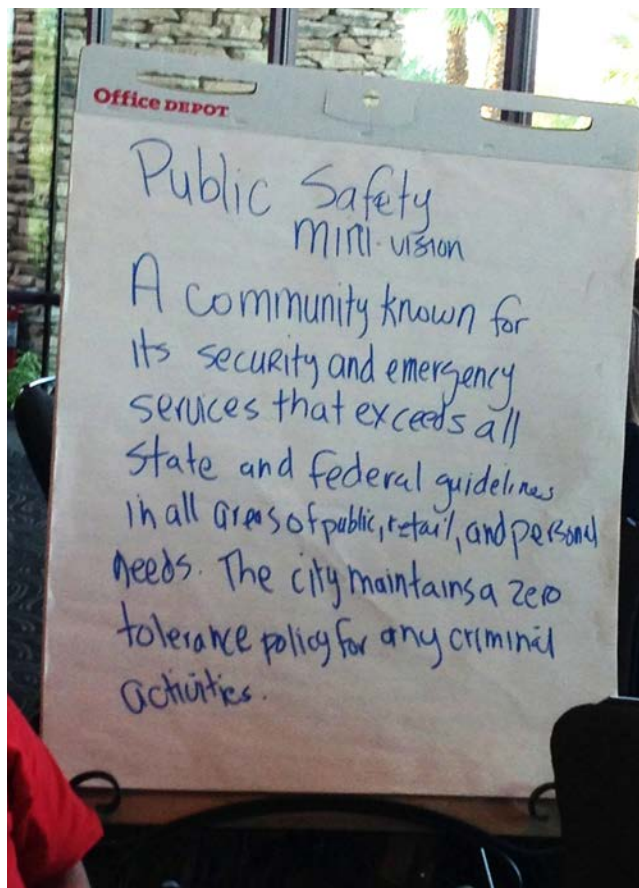 Office DEPOT
Public Safety
mini-vision
A community known for
its security and emergency
services that exceeds all
state and federal guidelines
in all areas of public, retail, and personal
needs. The city maintains a zero
tolerance policy for any criminal
activities.